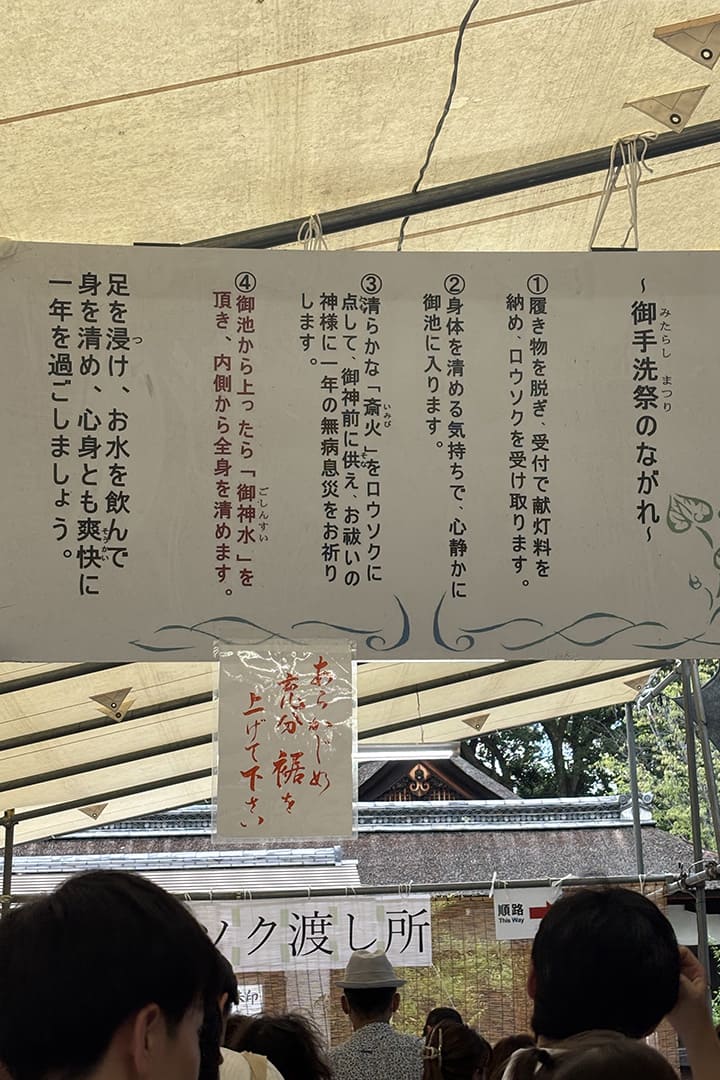 ~御手洗祭のながれ~
みたらし まつり
①履き物を脱ぎ、受付で献灯料を
納め、ロウソクを受け取ります。
②身体を清める気持ちで、心静かに
御池に入ります。
③清らかな「斎火」をロウソクに
いみび
点して、御神前に供え、お祓いの
とも
そな
神様に一年の無病息災をお祈り
します。
④御池から上ったら「御神水」を
ごしんすい
頂き、内側から全身を清めます。
足を浸け、お水を飲んで
つ
身を清め、心身とも爽快に
そうかい
一年を過ごしましょう。
あらかじめ
充分裾を
上げて下さい
ソク渡し所
順路
This Way
朱印